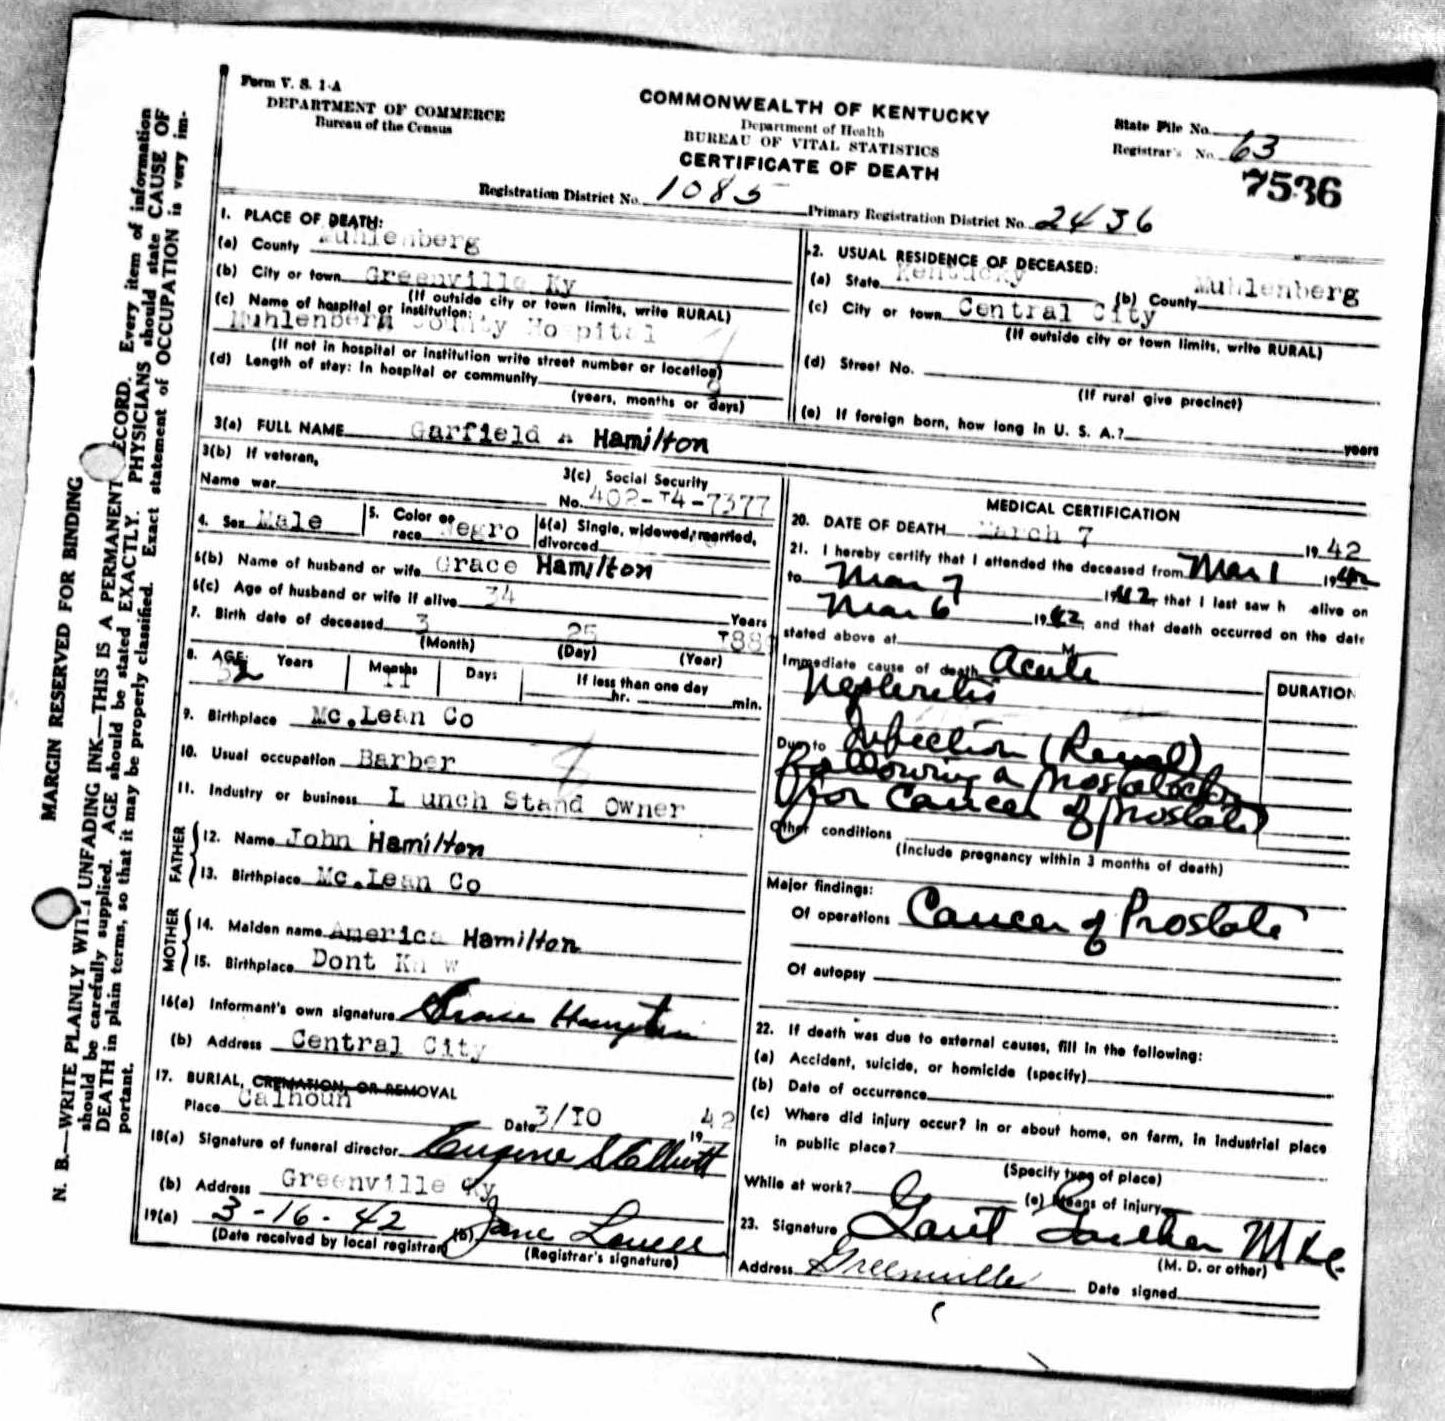 Form V. S. 1-A
DEPARTMENT OF COMMERCE
Bureau of the Census
COMMONWEALTH OF KENTUCKY
Department of Health
BUREAU OF VITAL STATISTICS
CERTIFICATE OF DEATH
State File No.
Registrar's No. 63
7536
Registration District No. 1085 Primary Registration District No. 2436
MARGIN RESERVED FOR BINDING
N. B.—WRITE PLAINLY WITH UNFADING INK—THIS IS A PERMANENT RECORD. Every item of information
should be carefully supplied. AGE should be stated EXACTLY. PHYSICIANS should state CAUSE OF
DEATH in plain terms, so that it may be properly classified. Exact statement of OCCUPATION is very im-
portant.
1. PLACE OF DEATH:
(a) County Muhlenberg
(b) City or town Greenville Ky
(If outside city or town limits, write RURAL)
(c) Name of hospital or institution:
Muhlenberg County Hospital
(If not in hospital or institution write street number or location)
(d) Length of stay: In hospital or community
(years, months or days)
2. USUAL RESIDENCE OF DECEASED:
(a) State Kentucky (b) County Muhlenberg
(c) City or town Central City
(If outside city or town limits, write RURAL)
(d) Street No.
(If rural give precinct)
(e) If foreign born, how long in U. S. A.? years
3(a) FULL NAME Garfield A Hamilton
3(b) If veteran,
Name war
3(c) Social Security
No. 402-I4-7377
4. Sex Male 5. Color or race Negro 6(a) Single, widowed, married, divorced
6(b) Name of husband or wife Grace Hamilton
6(c) Age of husband or wife if alive 34 Years
7. Birth date of deceased 3 25 I88
(Month) (Day) (Year)
8. AGE: Years Months Days If less than one day
II hr. min.
9. Birthplace Mc.Lean Co
10. Usual occupation Barber
11. Industry or business L unch Stand Owner
FATHER
12. Name John Hamilton
13. Birthplace Mc.Lean Co
MOTHER
14. Maiden name America Hamilton
15. Birthplace Dont Kn w
16(a) Informant's own signature Grace
(b) Address Central City
17. BURIAL, CREMATION, OR REMOVAL
Place Calhoun Date 3/IO 19 42
18(a) Signature of funeral director Eugene S Elliott
(b) Address Greenville Ky
19(a) 3-16-42 (b) Jane Lovell
(Date received by local registrar) (Registrar's signature)
MEDICAL CERTIFICATION
20. DATE OF DEATH March 7 19 42
21. I hereby certify that I attended the deceased from Mar 1 1942
to Mar 7 1942, that I last saw h alive on
Mar 6 1942, and that death occurred on the date
stated above at M
Immediate cause of death Acute
Nephritis
DURATION
Due to Infection (Renal)
following a prostatectomy
for Cancer of prostate
Other conditions
(Include pregnancy within 3 months of death)
Major findings:
Of operations Cancer of Prostate
Of autopsy
22. If death was due to external causes, fill in the following:
(a) Accident, suicide, or homicide (specify)
(b) Date of occurrence
(c) Where did injury occur? in or about home, on farm, in industrial place
in public place?
(Specify type of place)
While at work? (e) Means of injury
23. Signature
(M. D. or other)
Address Greenville Date signed